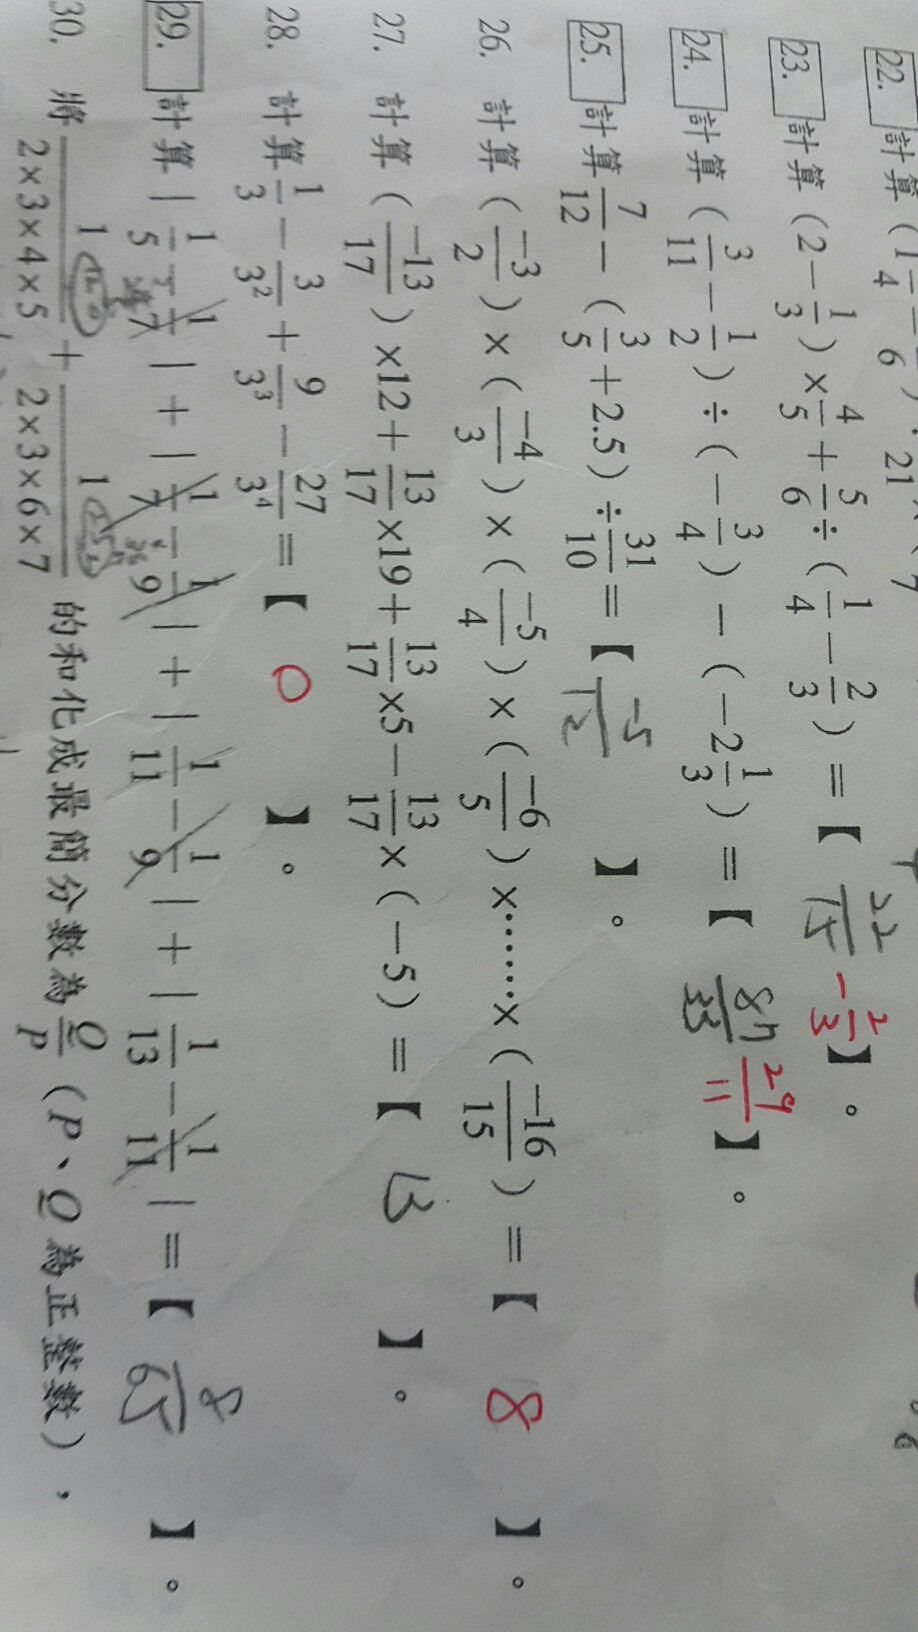 22. 計算(1
23. 計算(2－1/3)×4/5＋5/6÷(1/4－2/3)＝【 22/15 －2/3 】。
24. 計算(3/11－1/2)÷(－3/4)－(－2 1/3)＝【 87/33 29/11 】。
25. 計算7/12－(3/5＋2.5)÷31/10＝【 －5/12 】。
26. 計算(－3/2)×(－4/3)×(－5/4)×(－6/5)×……×(－16/15)＝【 8 】。
27. 計算(－13/17)×12＋13/17×19＋13/17×5－13/17×(－5)＝【 13 】。
28. 計算1/3－3/3²＋9/3³－27/3⁴＝【 0 】。
29. 計算|1/5－1/7|＋|1/7－1/9|＋|1/11－1/9|＋|1/13－1/11|＝【 8/65 】。
30. 將1/2×3×4×5＋1/2×3×6×7的和化成最簡分數為Q/P(P、Q為正整數)，